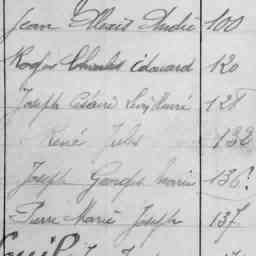 Jean Alexis André 100
Charles Edouard 120
Joseph Henri 128
René Jules 132
Joseph Georges Marie 136?
Pierre Marie Joseph 137